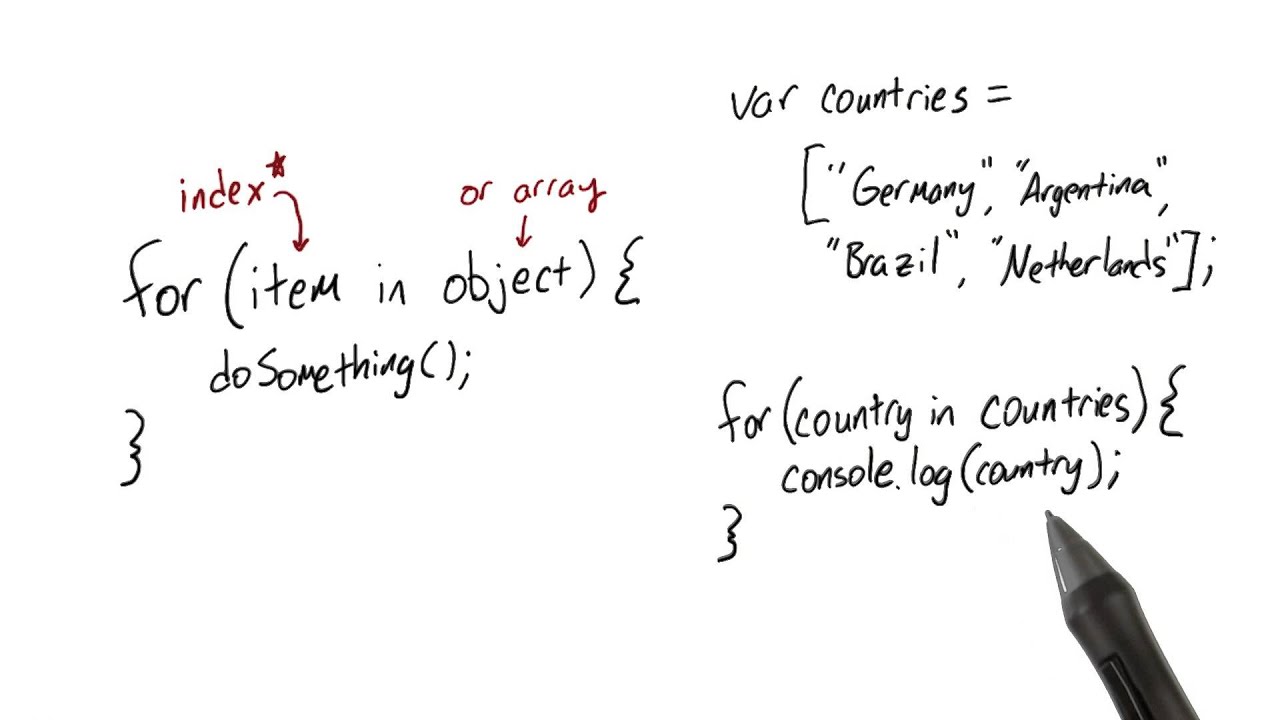 index*
or array
for (item in object) {
doSomething();
}
var countries =
["Germany", "Argentina",
"Brazil", "Netherlands"];
for (country in countries) {
console.log(country);
}